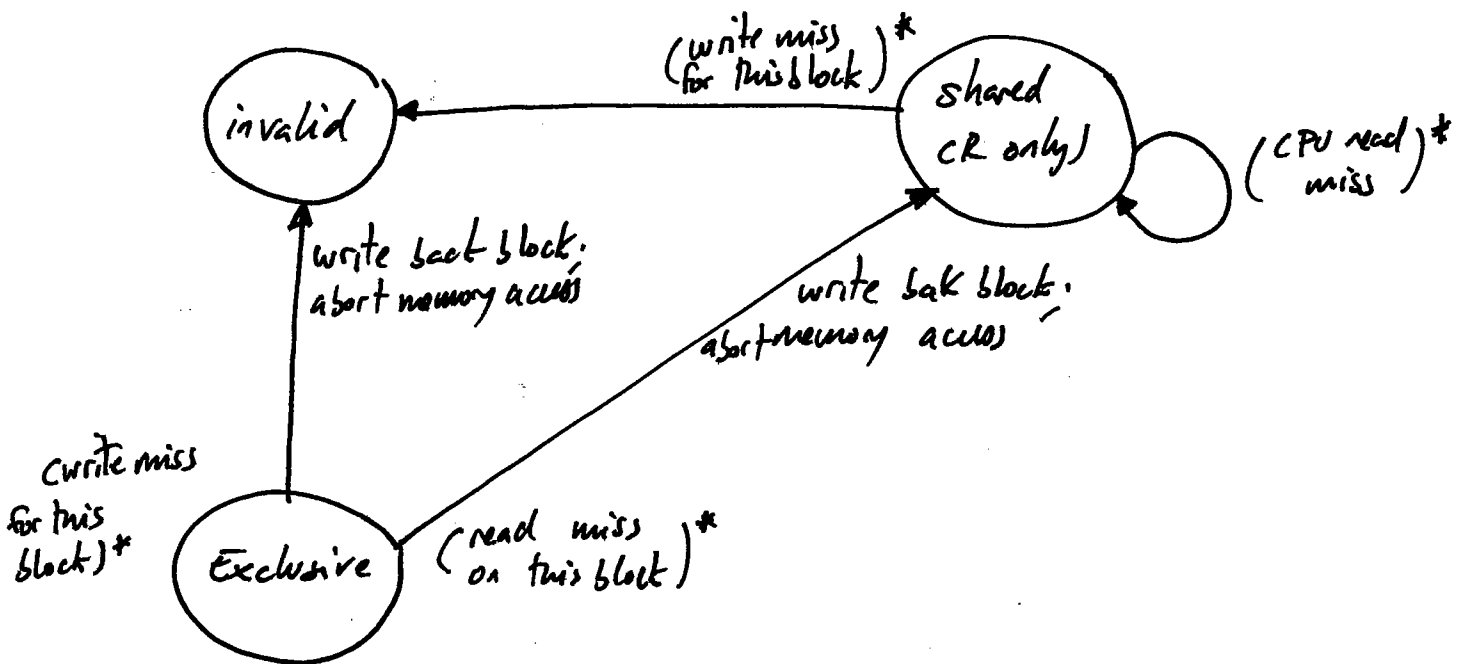 (write miss
for this block)*
invalid
shared
(R only)
(CPU read
miss)*
write back block.
abort memory access
write bak block.
abort memory access
(write miss
for this
block)*
Exclusive
(read miss
on this block)*